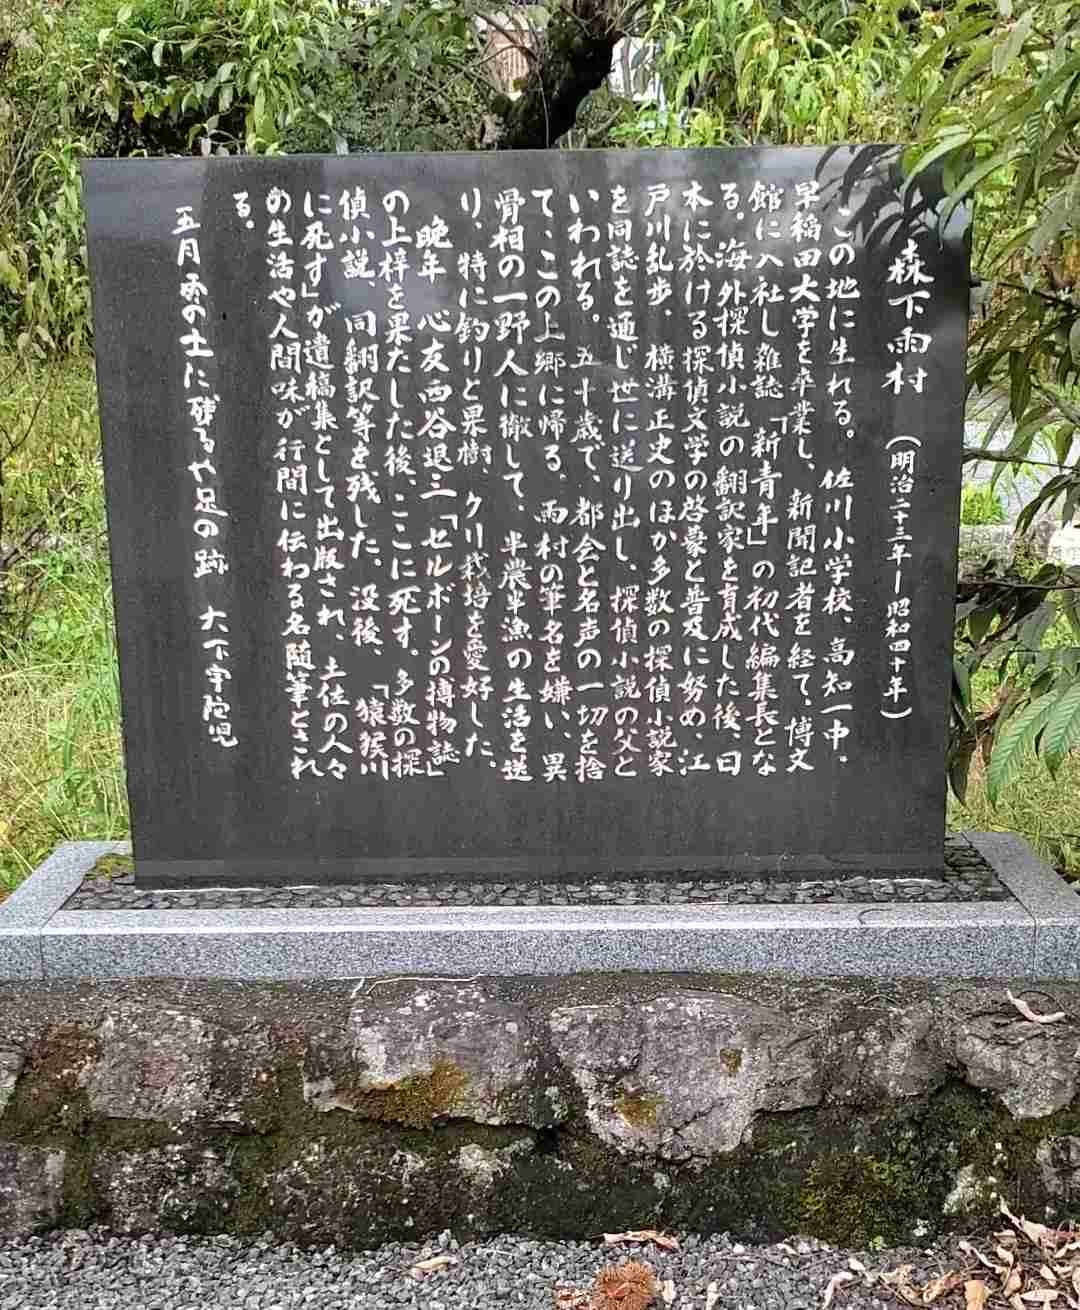 森下雨村 (明治二十三年ー昭和四十年)
この地に生れる。佐川小学校、高知一中・
早稲田大学を卒業し、新聞記者を経て、博文
館に入社し雑誌「新青年」の初代編集長とな
る。海外探偵小説の翻訳家を育成した後、日
本に於ける探偵文学の啓蒙と普及に努め、江
戸川乱歩、横溝正史のほか多数の探偵小説家
を同誌を通じ世に送り出し、探偵小説の父と
いわれる。五十歳で、都会と名声の一切を捨
て、この上郷に帰る。雨村の筆名を嫌い、異
骨相の一野人に徹して、半農半漁の生活を送
り、特に釣りと果樹、クリ栽培を愛好した。
晩年 心友西谷退三「セルボーンの博物誌」
の上梓を果たした後、ここに死す。多数の探
偵小説、同翻訳等を残した。没後、「猿猴川
に死す」が遺稿集として出版され、土佐の人々
の生活や人間味が行間に伝わる名随筆とされ
る。
五月雨の土に残るや足の跡 大下宇陀児